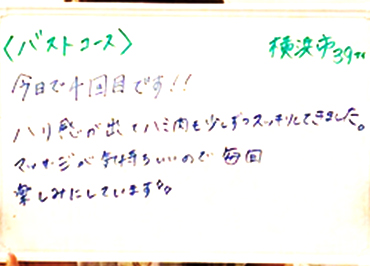 〈バストコース〉 横浜市39才
今日で4回目です!!
ハリ感が出てハミ肉も少しずつスッキリしてきました。
マッサージが気持ちいいので 毎回
楽しみにしています♪♪